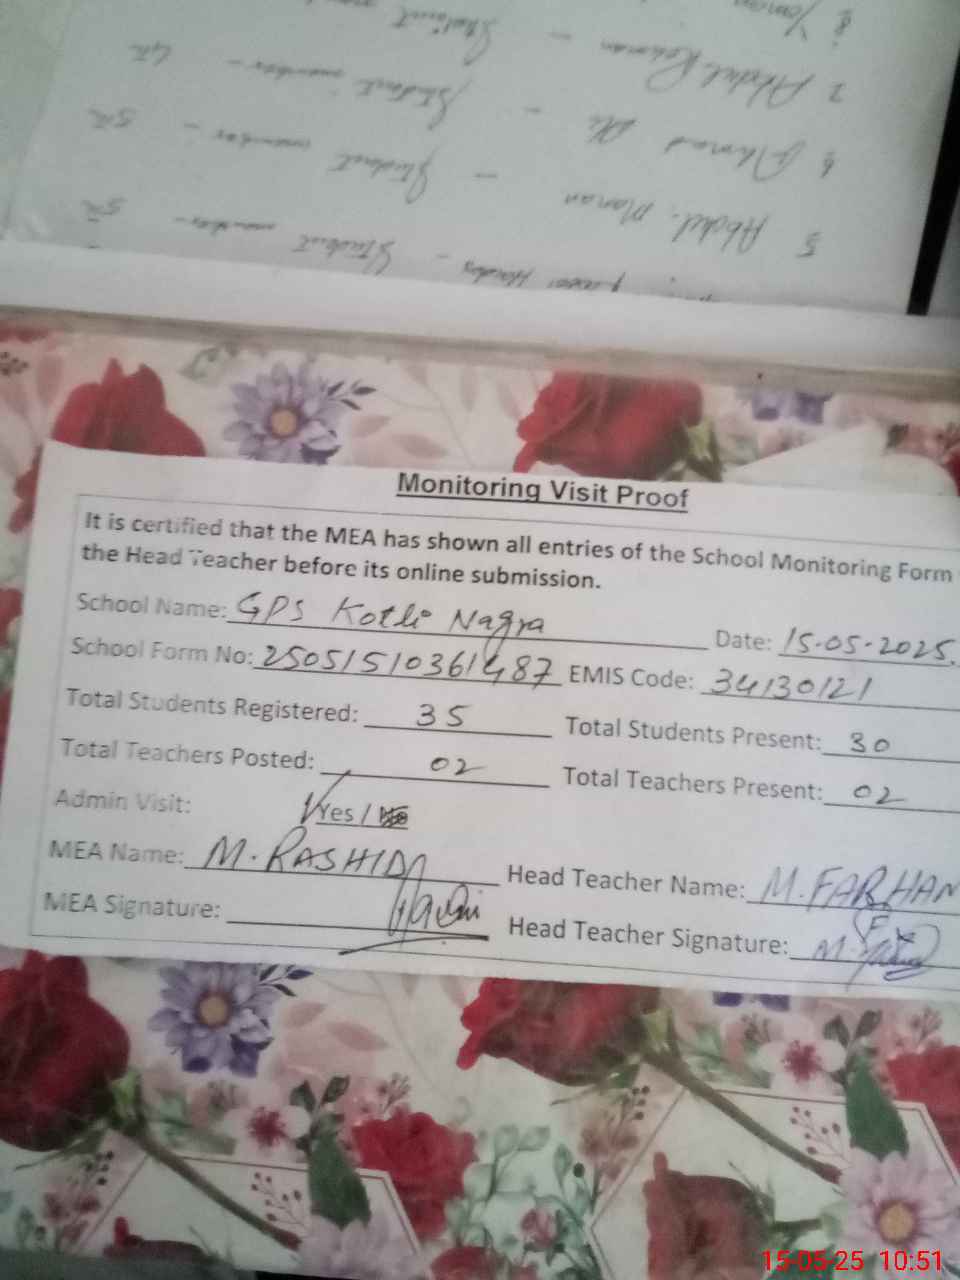 8
7 Abdul Rehman - Student
6 Ahmad Ali - Student member - 4th
5 Abdul Manan - Student member - 5th
- Student member - 5th
Monitoring Visit Proof
It is certified that the MEA has shown all entries of the School Monitoring Form
the Head Teacher before its online submission.
School Name: GPS Kotli Nagra Date: 15-05-2025.
School Form No: 25051510361487 EMIS Code: 34130121
Total Students Registered: 35 Total Students Present: 30
Total Teachers Posted: 02 Total Teachers Present: 02
Admin Visit: Yes / No
MEA Name: M. RASHID Head Teacher Name: M. FARHAN
MEA Signature: Head Teacher Signature:
15-05-25 10:51